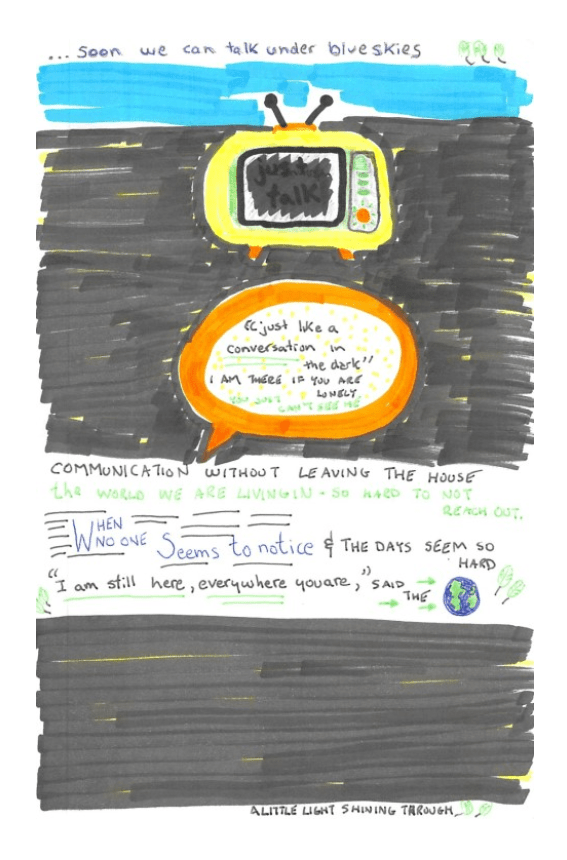 ... soon we can talk under blue skies
just
talk
"just like a
conversation in
the dark"
I AM THERE IF YOU ARE
LONELY
YOU JUST
CAN'T SEE ME
COMMUNICATION WITHOUT LEAVING THE HOUSE
the WORLD WE ARE LIVING IN - SO HARD TO NOT
REACH OUT.
WHEN
NO ONE Seems to notice & THE DAYS SEEM SO
HARD
"I am still here, everywhere you are," SAID
THE
A LITTLE LIGHT SHINING THROUGH